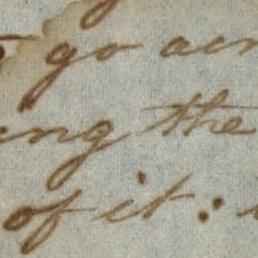 go
ing the
of it :